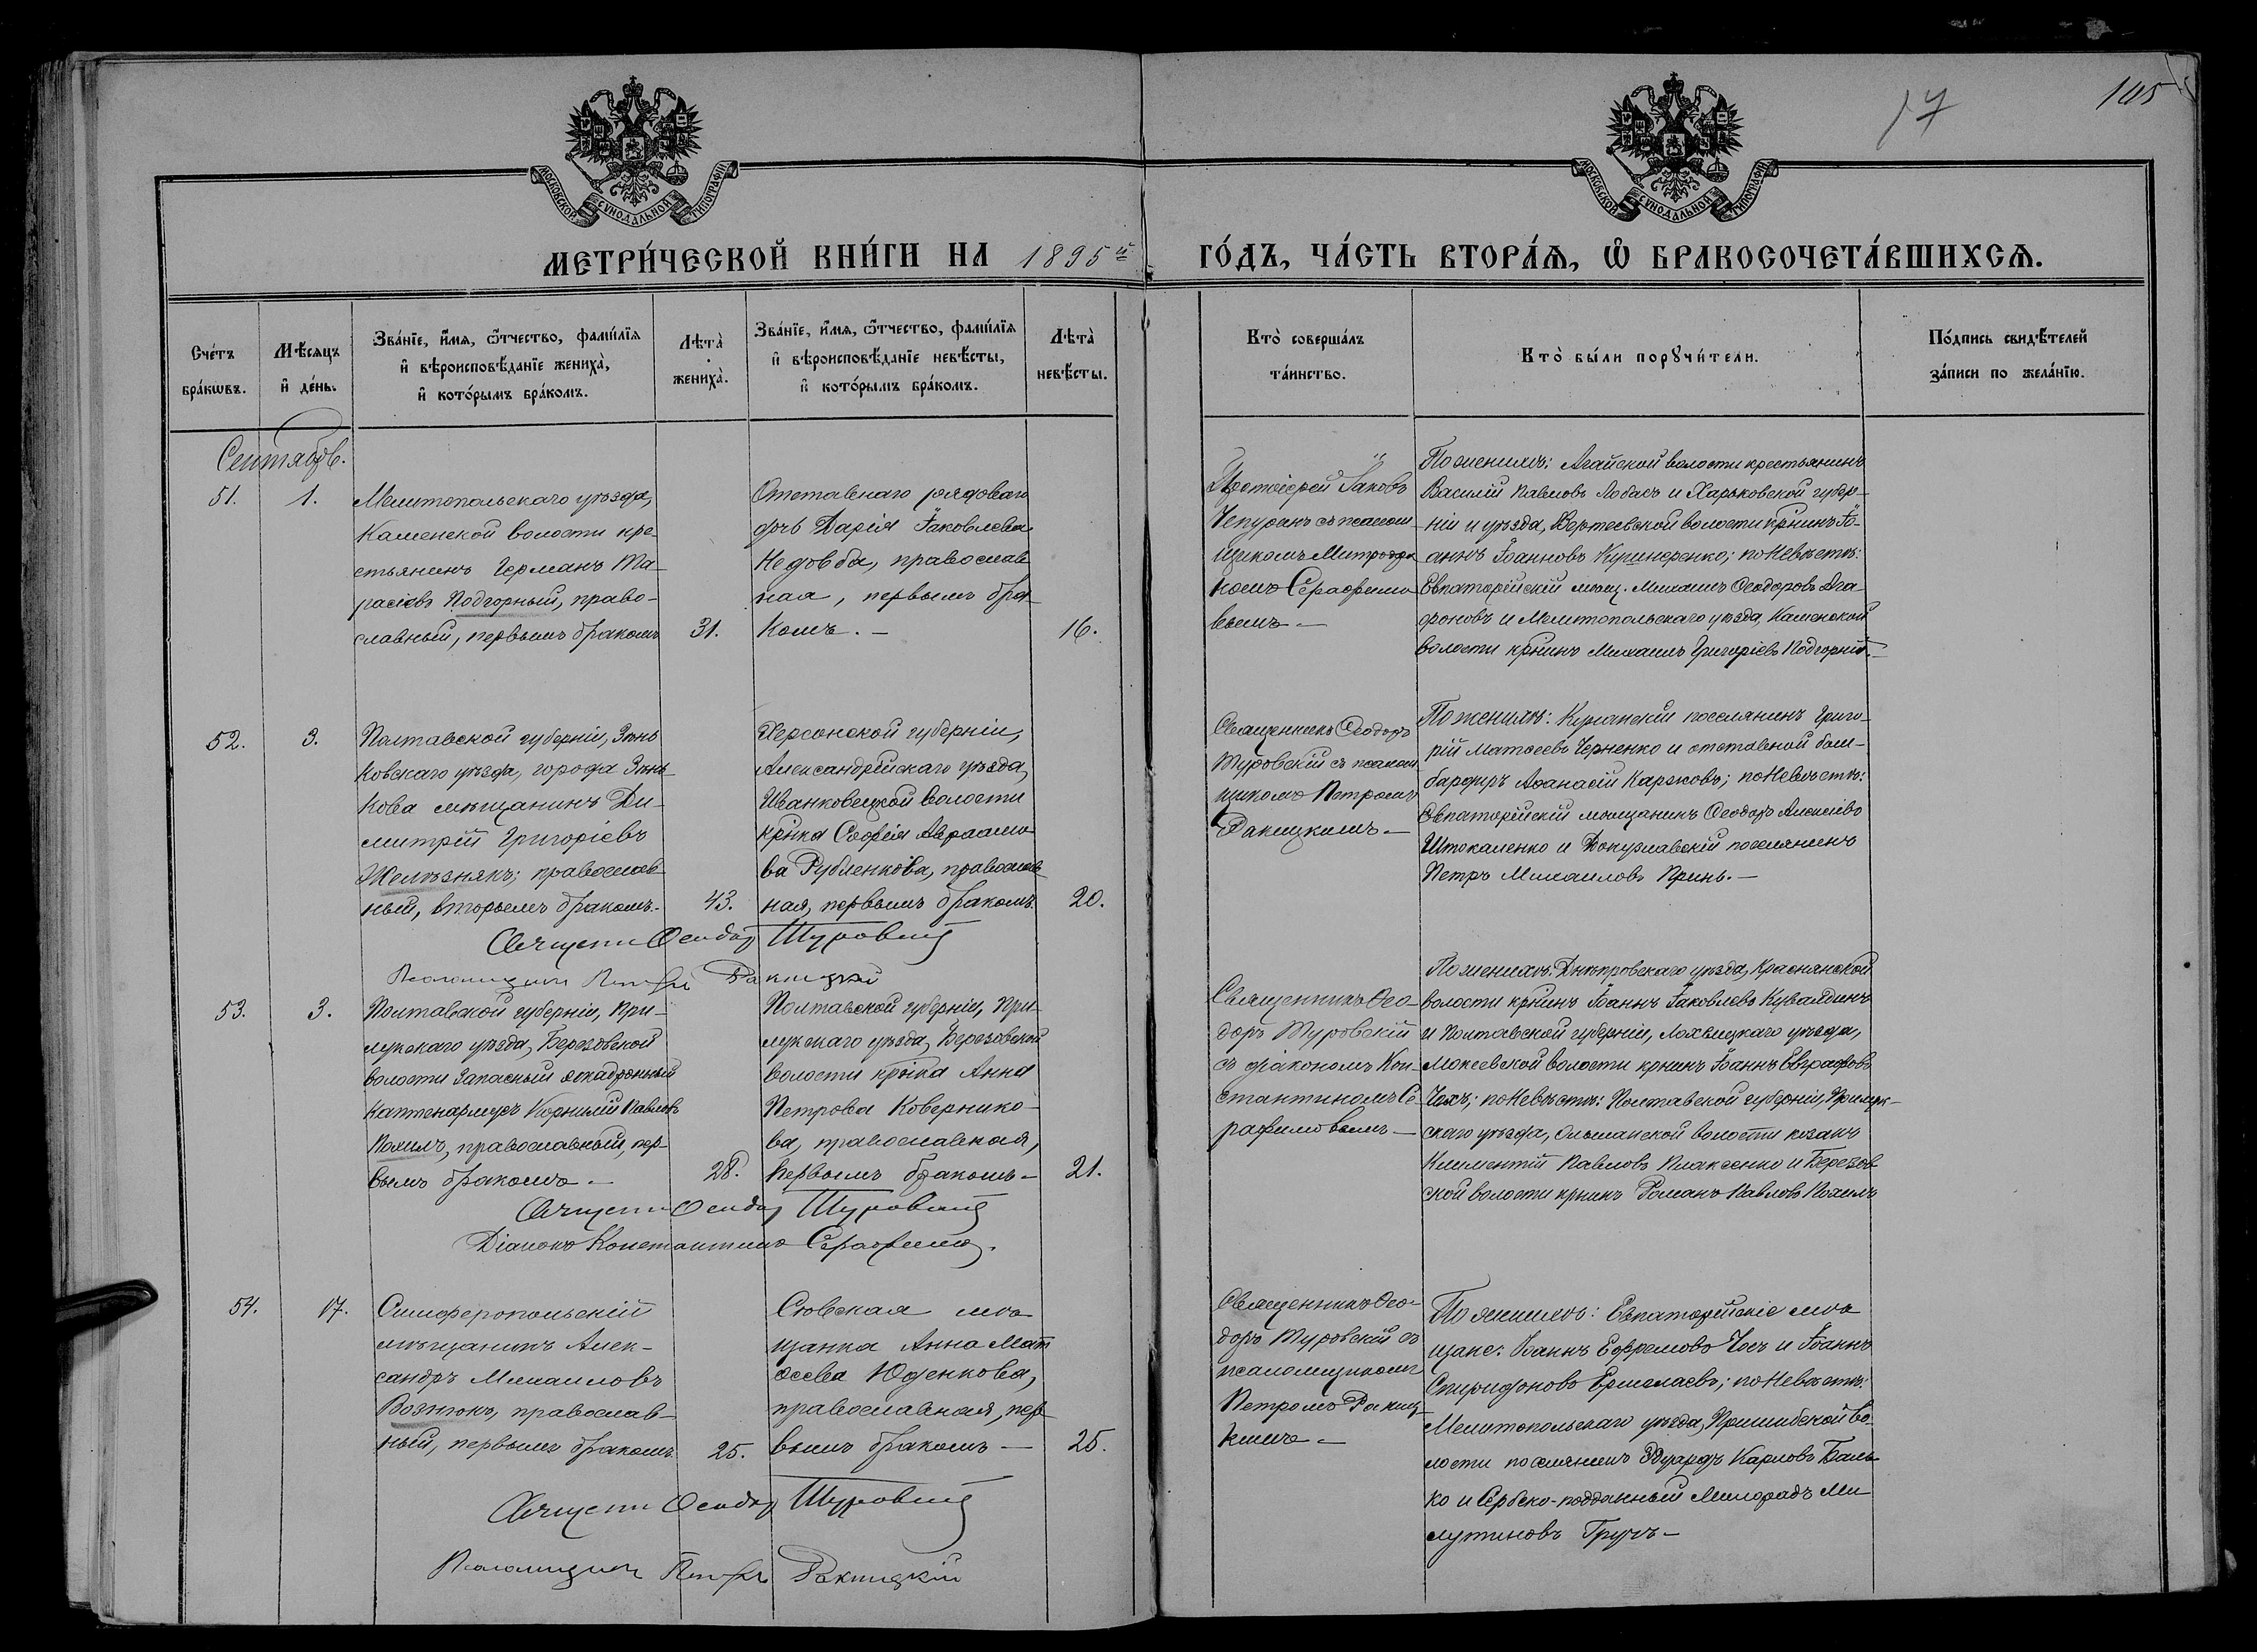 17
105
МОСКОВСКОЙ СѴНОДАЛЬНОЙ ТИПОГРАФІИ
МОСКОВСКОЙ СѴНОДАЛЬНОЙ ТИПОГРАФІИ
МЕТРИ́ЧЕСКОЙ КНИ́ГИ НА 1895й ГО́ДЪ, ЧА́СТЬ ВТОРА́Ѧ, Ѽ БРАКОСОЧЕТА́ВШИХСѦ.
Сче́тъ
бра́кѡвъ.
Мѣ́сѧцъ
и҆ де́нь.
Зва́нїе, и҆́мѧ, ѻ҆́тчество, фами́лїѧ
и҆ вѣроисповѣ́данїе жениха̀,
и҆ кото́рымъ бра́комъ.
Лѣта̀
жениха̀.
Зва́нїе, и҆́мѧ, ѻ҆́тчество, фами́лїѧ
и҆ вѣроисповѣ́данїе невѣ́сты,
и҆ кото́рымъ бра́комъ.
Лѣта̀
невѣ́сты.
Кто̀ соверша́лъ
та́инство.
Кто̀ бы́ли порꙋчи́тели.
По́дпись свидѣ́телей
за́писи по жела́нїю.
Сентябрь.
51.
1.
Мелитопольскаго уѣзда,
Каменской волости кре-
стьянинъ Германъ Та-
расіевъ Подгорный, право-
славный, первымъ бракомъ
31.
Отставнаго рядоваго
дочь Дарія Іаковлева
Недовба, православ
ная, первымъ бра-
комъ. —
16.
Протоіерей Іаковъ
Чепуранъ съ псалом-
щикомъ Митрофа
номъ Серафимо
вымъ —
По женихѣ: Агайской волости крестьянинъ
Василій Павловъ Лобасъ и Харьковской губер-
ніи и уѣзда, Дергаевской волости крнинъ Іо-
аннъ Іоанновъ Кушнеренко; по невѣстѣ:
Евпаторійскій мѣщ. Михаилъ Ѳеодоровъ Ага
фоновъ и Мелитопольскаго уѣзда, Каменской
волости крнинъ Михаилъ Григоріевъ Подгорній. —
52.
3.
Полтавской губерніи, Зѣнь
ковскаго уѣзда, города Зѣнь-
кова мѣщанинъ Ди-
митрій Григоріевъ
Желѣзнякъ; православ-
ный, вторымъ бракомъ.
43.
Херсонской губерніи,
Александрійскаго уѣзда,
Иванковецкой волости
крнка Софія Авраамо
ва Рубленкова, православ
ная, первымъ бракомъ.
20.
Священникъ Ѳеодоръ
Туровскій съ псалом
щикомъ Петромъ
Ракицкимъ —
По женихѣ: Курманскій поселянинъ Григо-
рій Матѳеевъ Черненко и отставной бом-
бардиръ Аѳанасій Каржовъ; по невѣстѣ:
Евпаторійскій мѣщанинъ Ѳеодоръ Алексіевъ
Штокаленко и Докузлавскій поселянинъ
Петръ Михаиловъ Принь. —
Священн Ѳеодор Туровскій
Псаломщикъ Петръ Ракицкій
53.
3.
Полтавской губерніи, При-
лукскаго уѣзда, Березовской
волости запасный эскадронный
каптенармусъ Корнилій Павловъ
Похилъ, православный, пер-
вымъ бракомъ. —
28.
Полтавской губерніи, При-
лукскаго уѣзда, Березовской
волости крнка Анна
Петрова Ковернико-
ва, православная,
первымъ бракомъ —
21.
Священникъ Ѳео-
доръ Туровскій
съ діакономъ Кон-
стантиномъ Се-
рафимовымъ —
По женихѣ: Днѣпровскаго уѣзда, Краснянской
волости крнинъ Іоаннъ Іаковлевъ Кувалдинъ
и Полтавской губерніи, Лохвицкаго уѣзда,
Мокеевской волости крнинъ Іоаннъ Евграфовъ
Чехъ; по невѣстѣ: Полтавской губерніи, Прилук-
скаго уѣзда, Ольшанской волости козакъ
Климентій Павловъ Плаксенко и Березов
ской волости крнинъ Романъ Павловъ Похилъ
Священн Ѳеодор Туровскій
Діаконъ Константинъ Серафимов.
54.
17.
Симферопольскій
мѣщанинъ Алек-
сандръ Михаиловъ
Вознюкъ, православ-
ный, первымъ бракомъ
25.
Сѣвская мѣ
щанка Анна Мат
ѳеева Юденкова,
православная, пер
вымъ бракомъ —
25.
Священникъ Ѳео-
доръ Туровскій съ
псаломщикомъ
Петромъ Ракиц-
кимъ —
По женихѣ: Евпаторійскіе мѣ
щане: Іоаннъ Ефремовъ Чосъ и Іоаннъ
Спиридоновъ Ермолаевъ; по невѣстѣ:
Мелитопольскаго уѣзда, Пришибской во-
лости поселянинъ Эдуардъ Карловъ Баль
ко и Сербско-подданный Милорадъ Ми
лутиновъ Груичъ —
Священн Ѳеодор Туровскій
Псаломщикъ Петръ Ракицкій